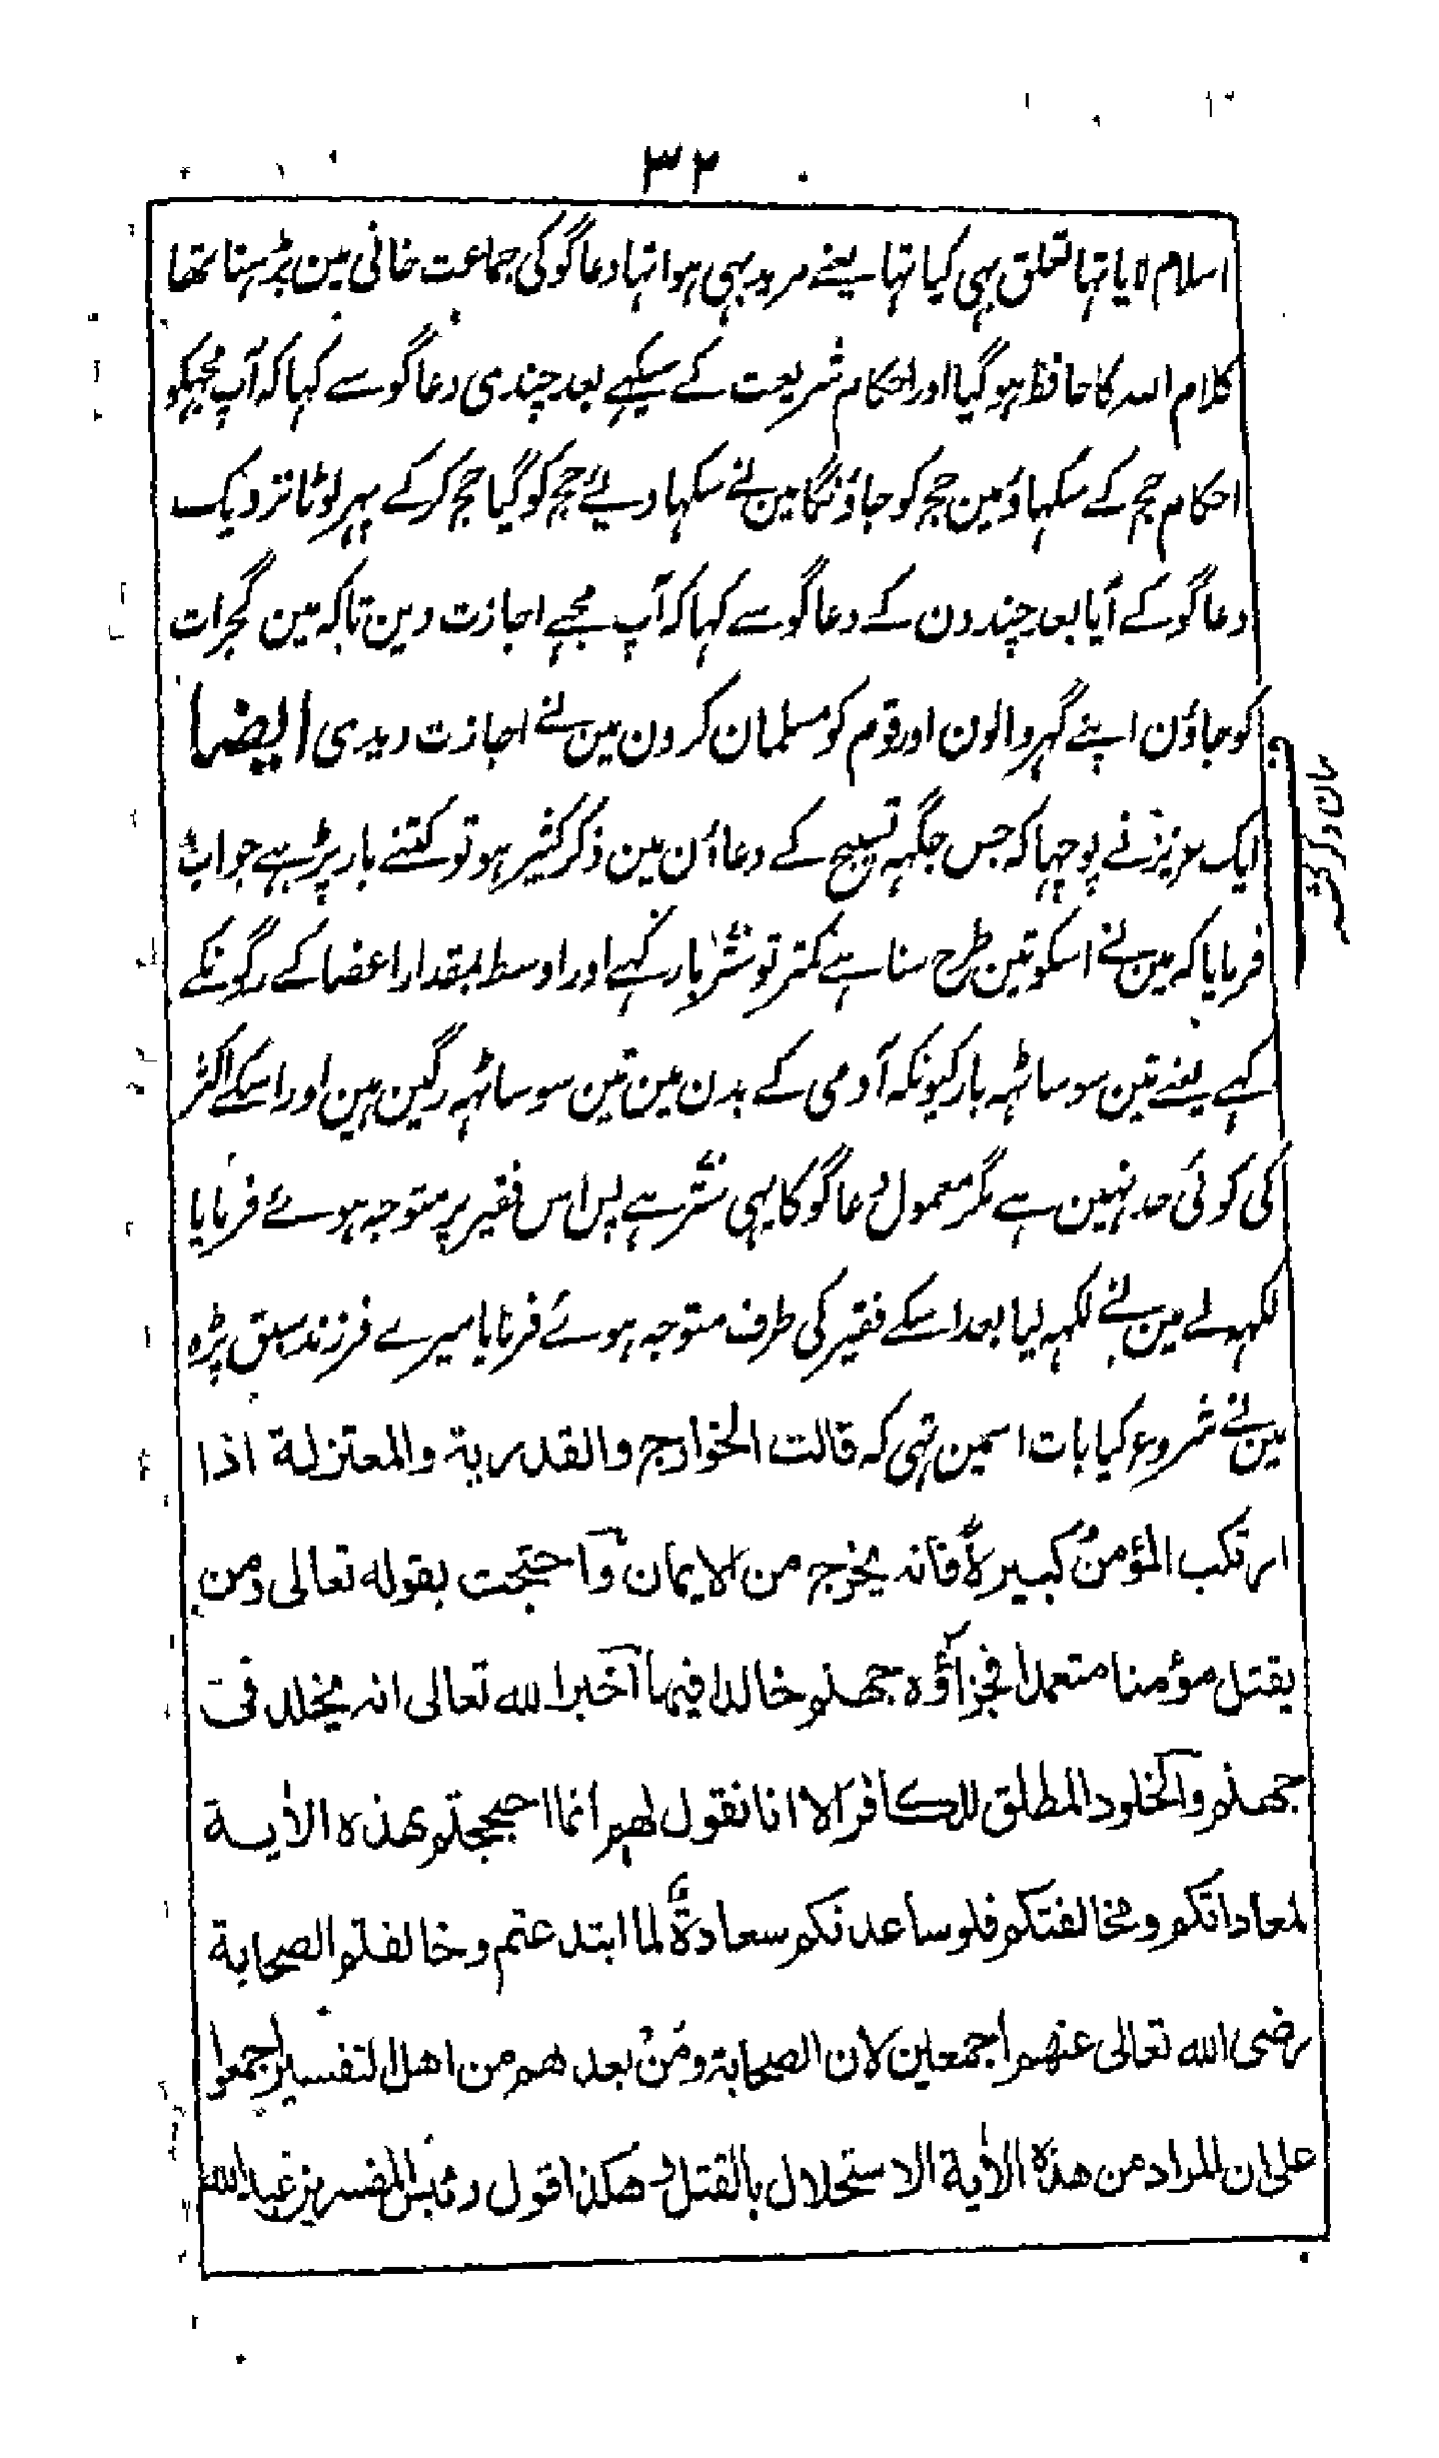 ۳۲
اسلام لایا تہا تعلق بہی کیا تہا یعنے مرید بہی ہوا تہا دعاگو کی جماعت خانی مین پڑہنا تھا
کلام اللہ کا حافظ ہوگیا اور احکام شریعت کے سیکہے بعد چندی دعاگو سے کہا کہ آپ مجہکو
احکام حج کے سکہاؤ مین حج کو جاؤنگا مین نے سکہا دیئے حج کو گیا حج کرکے پہر لوٹا نزدیک
دعاگو کے آیا بعد چند دن کے دعاگو سے کہا کہ آپ مجہے اجازت دین تاکہ مین گجرات
کو جاؤن اپنے گہر والون اور قوم کو مسلمان کرون مین نے اجازت دیدی ایضا
ایک عزیز نے پوچہا کہ جس جگہہ تسبیح کے دعاؤن مین ذکر کثیر ہو تو کتنے بار پڑہے جواب
فرمایا کہ مین نے اسکو تین طرح سنا ہے کمتر تو ستر بار کہے اور اوسط بمقدار اعضا کے رگونکے
کہے یعنے تین سو ساٹہہ بار کیونکہ آدمی کے بدن مین تین سو ساٹہہ رگین ہین اور اسکے اکثر
کی کوئی حد نہین ہے مگر معمول دعاگو کا یہی ستر ہے پس اس فقیر پر متوجہ ہوئے فرمایا
لکہہ لے مین نے لکہہ لیا بعد اسکے فقیر کی طرف متوجہ ہوئے فرمایا میرے فرزند سبق پڑہ
مین نے شروع کیا بات اسمین تہی کہ قالت الخوارج والقدریة والمعتزلة اذا
ارتکب المؤمن کبیرة فانه یخرج من الایمان واحتجت بقوله تعالی ومن
یقتل مؤمنا متعمدا فجزاؤه جهنم خالدا فیها اخبر الله تعالی انه یخلد فی
جهنم والخلود المطلق للکافر الا انا نقول لهم انما احججتم بهذه الأیة
لمعاداتکم ومخالفتکم فلو ساعدتکم سعادة لما ابتدعتم وخالفتم الصحابة
رضی الله تعالی عنهم اجمعین لان الصحابة ومن بعدهم من اهل التفسیر اجمعوا
علی ان المراد من هذه الأیة الاستحلال بالقتل وهکذا قول رئیس المفسرین عبدالله
ذکر کثیر